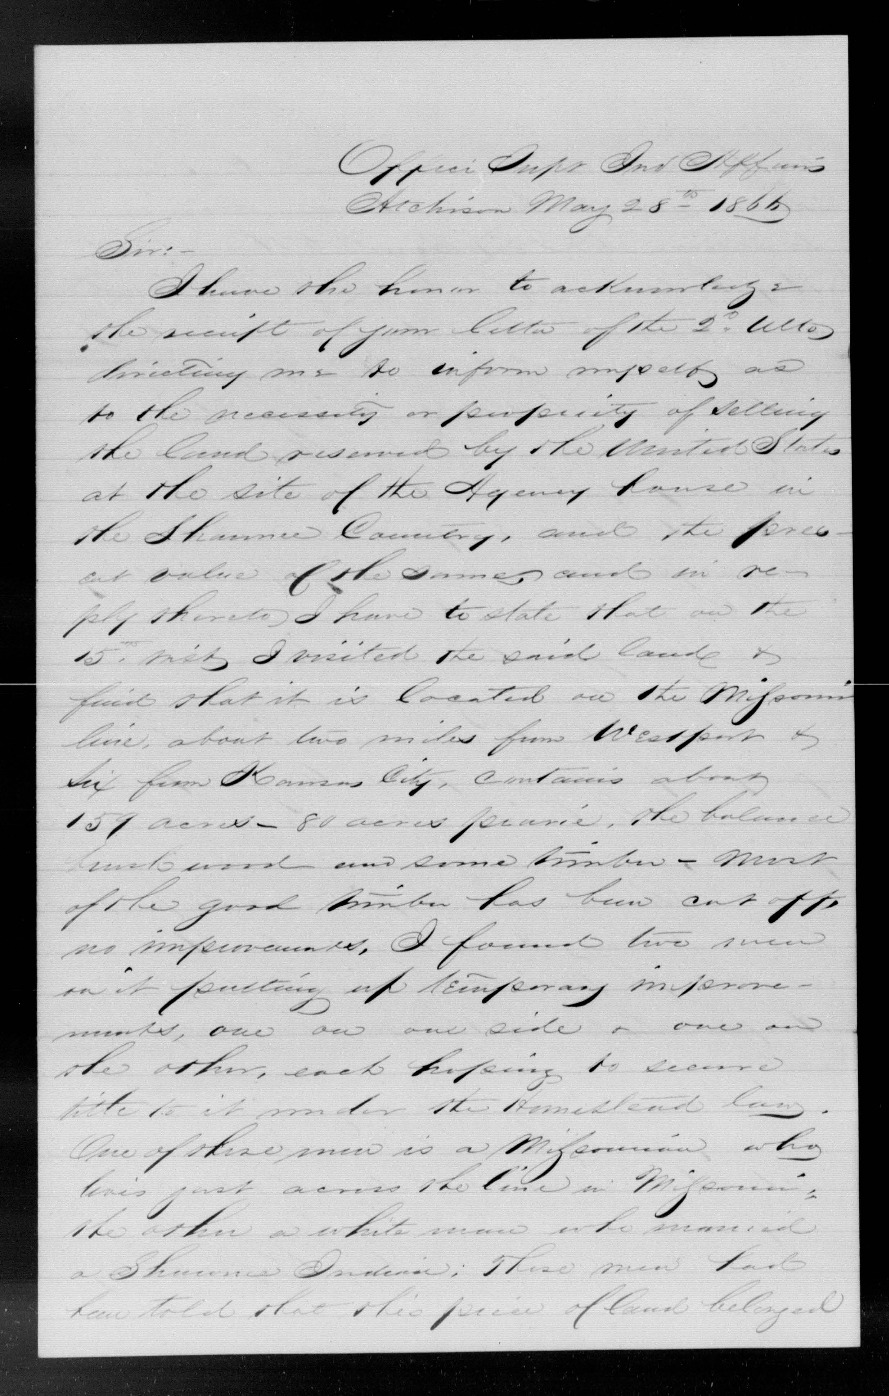 Office Supt Ind Affairs
Atchison May 28th 1866
Sir:-
I have the honor to acknowledge
the receipt of your letter of the 2d Ulto
directing me to inform myself as
to the necessity or propriety of selling
the land reserved by the United States
at the site of the Agency house in
the Shawnee Country, and the pres-
ent value of the same, and in re-
ply thereto, I have to state that on the
15th inst, I visited the said land &
find that it is located on the Missouri
line, about two miles from Westport &
six from Kansas City, contains about
159 acres - 80 acres prairie, the balance
brush wood and some timber - most
of the good timber has been cut off,
no improvements, I found two men
on it putting up temporary improve-
ments, one on one side & one on
the other, each hoping to secure
title to it under the Homestead law.
One of these men is a Missourian who
lives just across the line in Missouri,
the other a white man who married
a Shawnee Indian; these men had
been told that this piece of land belonged